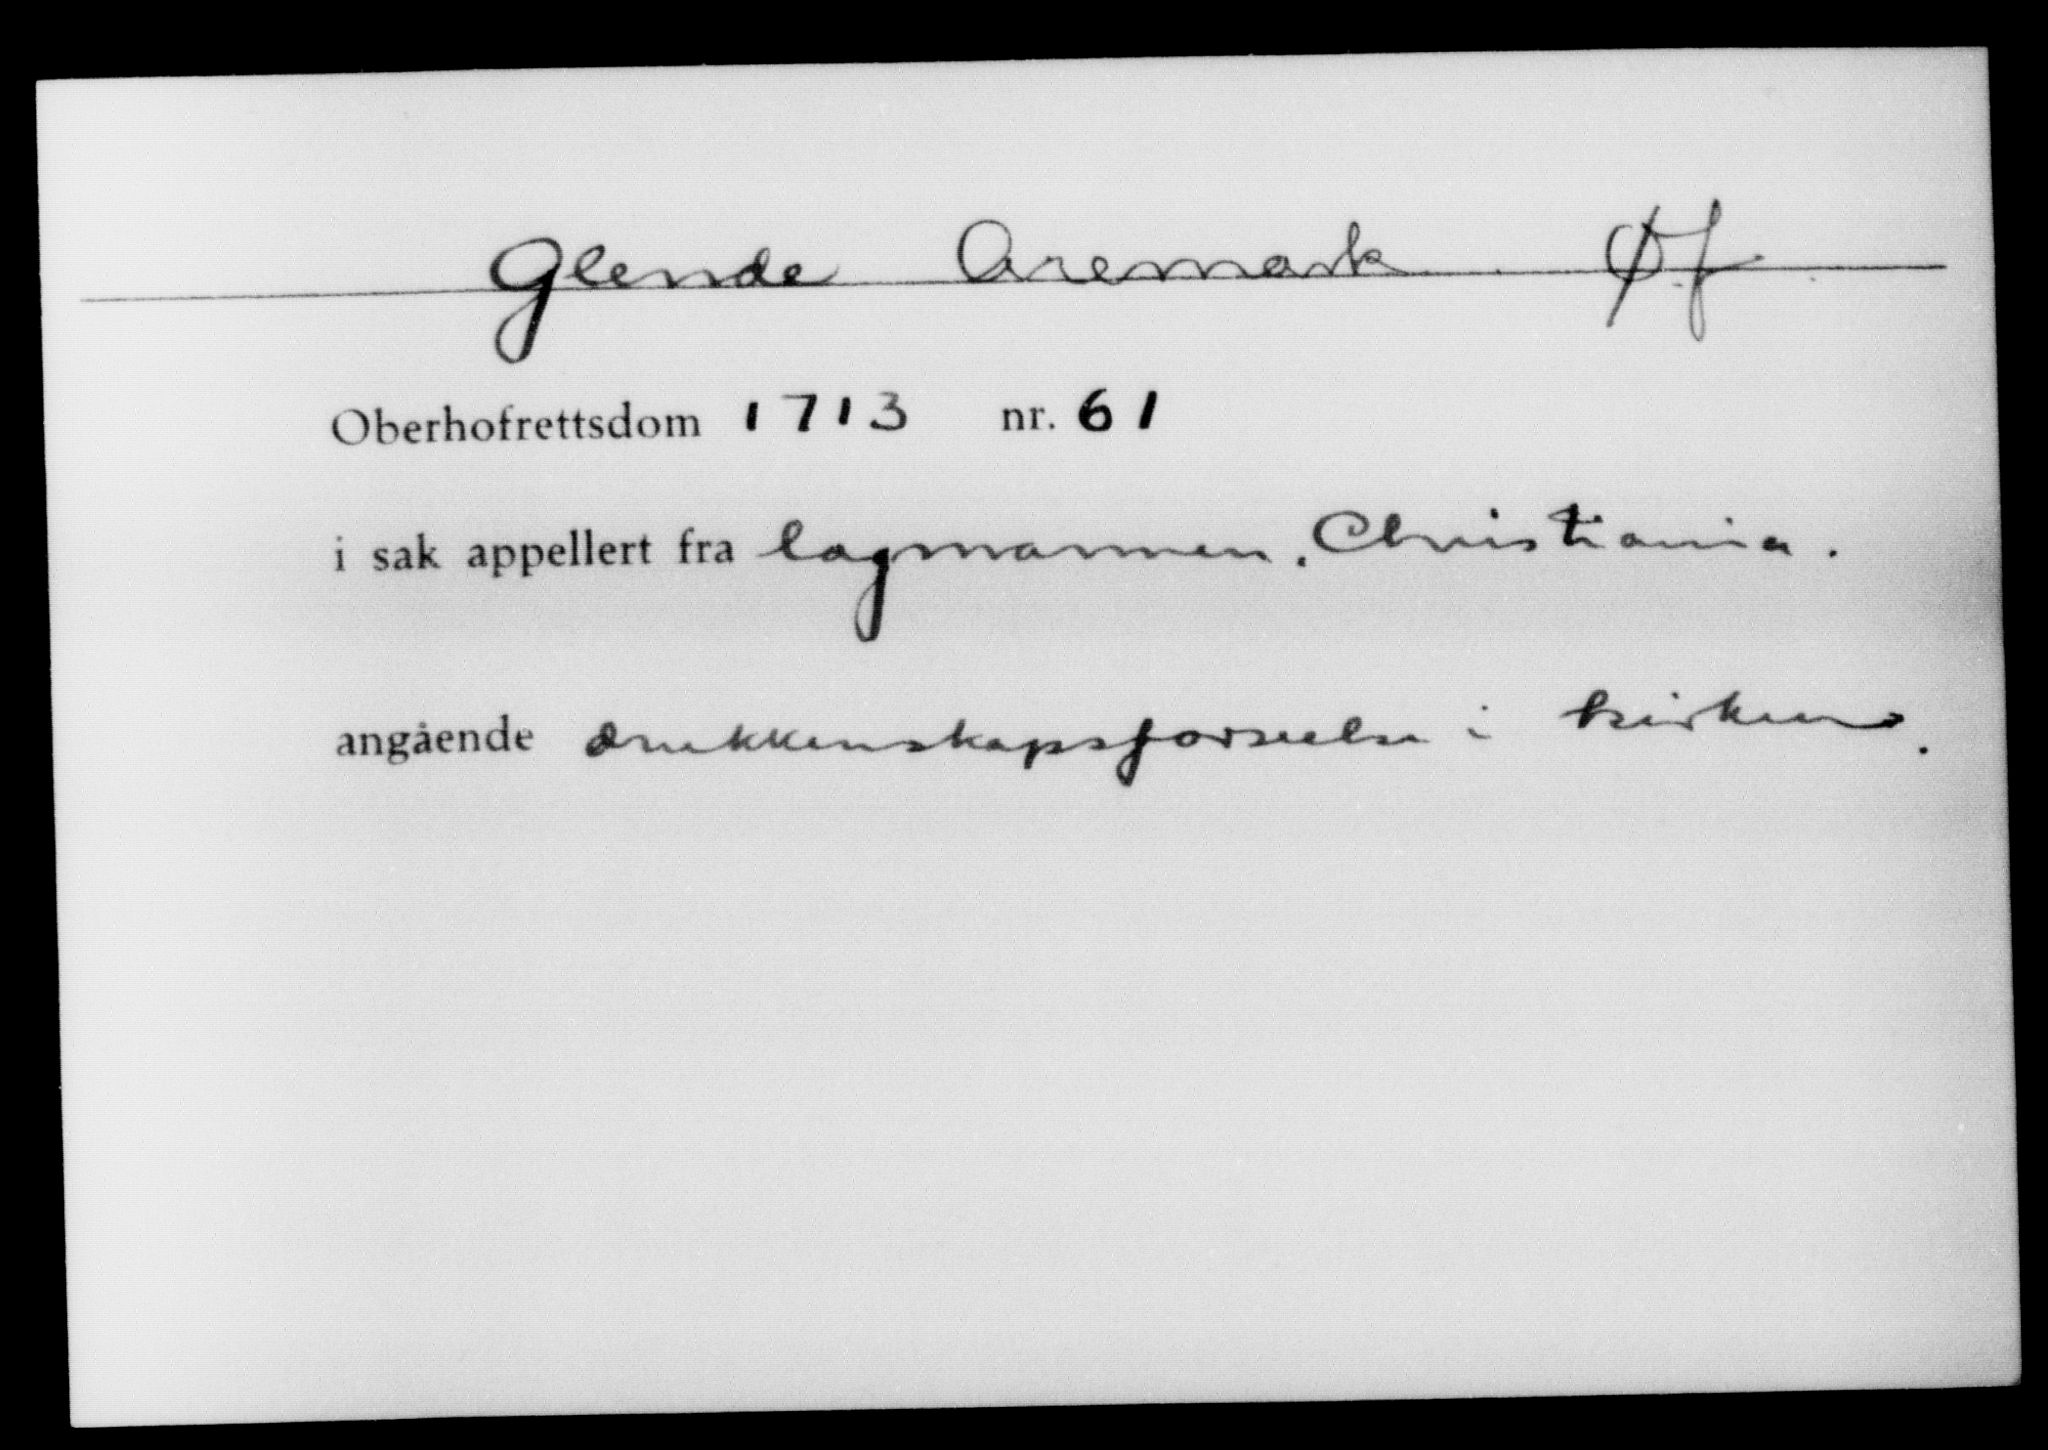 Glende Aremark Øf
Oberhofrettsdom 1713 nr. 61
i sak appellert fra lagmannen, Christiania.
angående drukkenskapsforseelse i kirken.